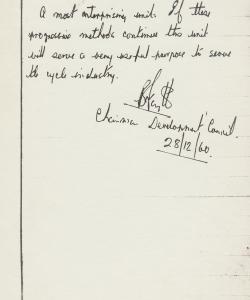 A most enterprising unit. If these
progressive methods continue this unit
will serve a very useful purpose to serve
the cycle industry.
Chairman Development Council.
28/12/60.